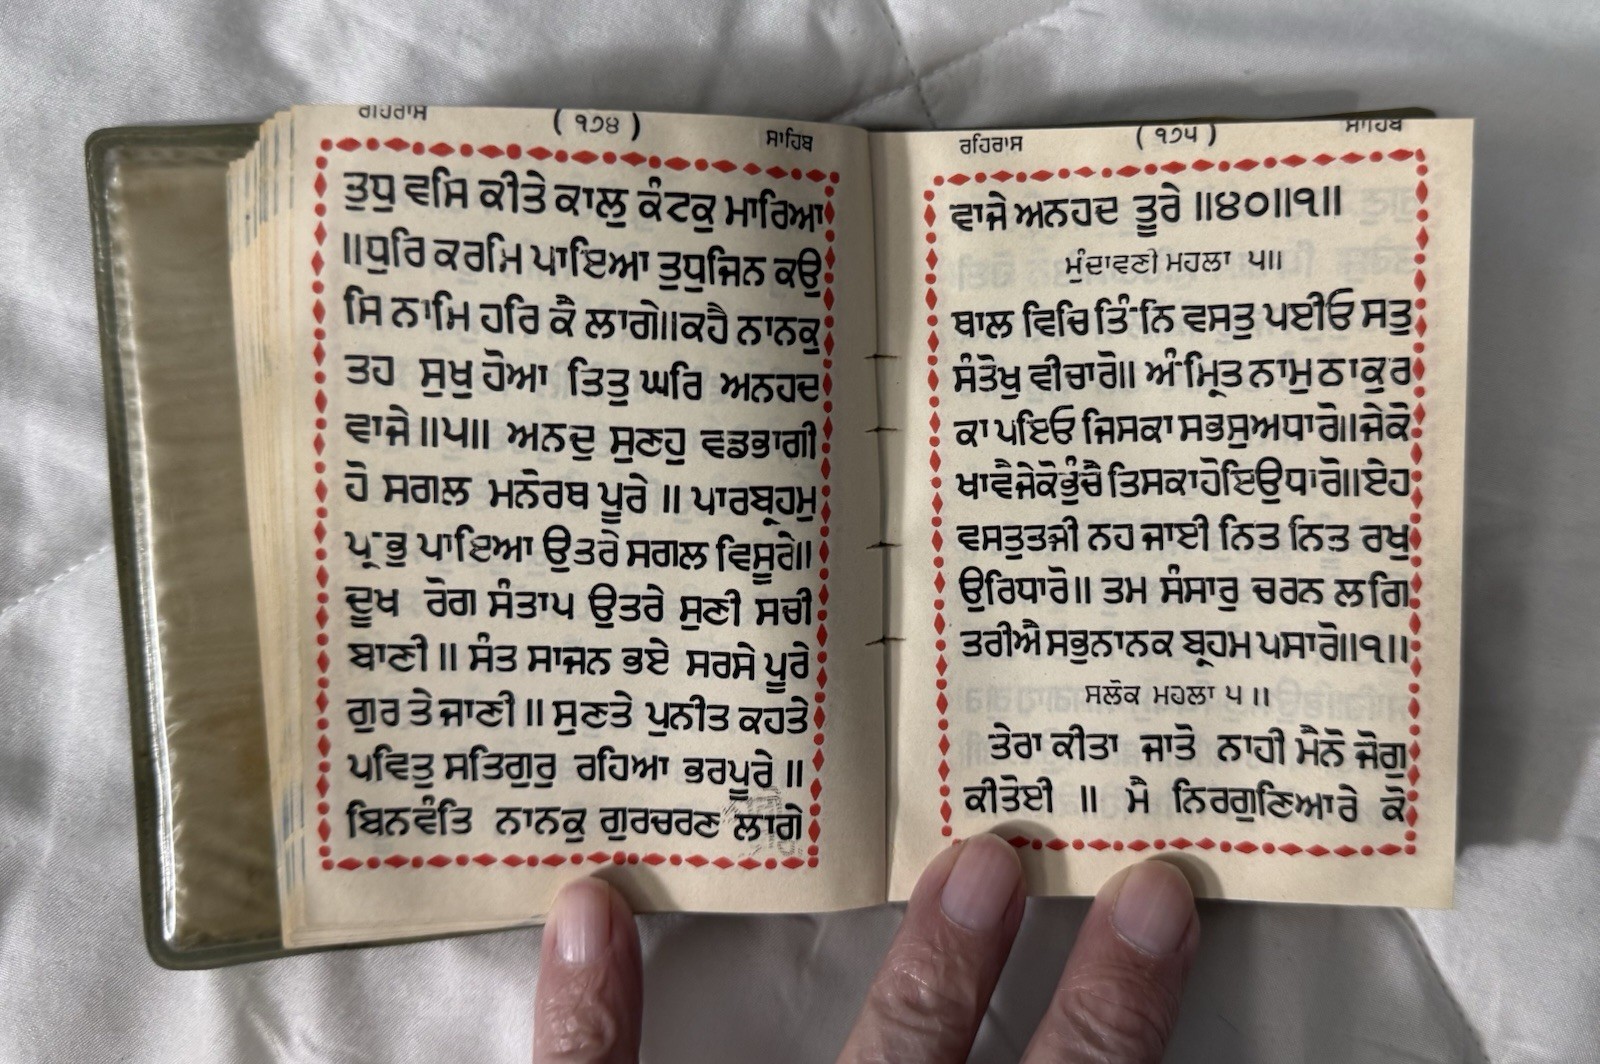 ਰਹਿਰਾਸ (੧੭੪) ਸਾਹਿਬ
ਤੁਧੁ ਵਸਿ ਕੀਤੇ ਕਾਲੁ ਕੰਟਕੁ ਮਾਰਿਆ
॥ਧੁਰਿ ਕਰਮਿ ਪਾਇਆ ਤੁਧੁਜਿਨ ਕਉ
ਸਿ ਨਾਮਿ ਹਰਿ ਕੈ ਲਾਗੇ॥ਕਹੈ ਨਾਨਕੁ
ਤਹ ਸੁਖੁ ਹੋਆ ਤਿਤੁ ਘਰਿ ਅਨਹਦ
ਵਾਜੇ ॥੫॥ ਅਨਦੁ ਸੁਣਹੁ ਵਡਭਾਗੀ
ਹੋ ਸਗਲ ਮਨੋਰਥ ਪੂਰੇ ॥ ਪਾਰਬ੍ਰਹਮੁ
ਪ੍ਰਭੁ ਪਾਇਆ ਉਤਰੇ ਸਗਲ ਵਿਸੂਰੇ॥
ਦੂਖ ਰੋਗ ਸੰਤਾਪ ਉਤਰੇ ਸੁਣੀ ਸਚੀ
ਬਾਣੀ ॥ ਸੰਤ ਸਾਜਨ ਭਏ ਸਰਸੇ ਪੂਰੇ
ਗੁਰ ਤੇ ਜਾਣੀ ॥ ਸੁਣਤੇ ਪੁਨੀਤ ਕਹਤੇ
ਪਵਿਤੁ ਸਤਿਗੁਰੁ ਰਹਿਆ ਭਰਪੂਰੇ ॥
ਬਿਨਵੰਤਿ ਨਾਨਕੁ ਗੁਰਚਰਣ ਲਾਗੇ
ਰਹਿਰਾਸ (੧੭੫) ਸਾਹਿਬ
ਵਾਜੇ ਅਨਹਦ ਤੂਰੇ ॥੪੦॥੧॥
ਮੁੰਦਾਵਣੀ ਮਹਲਾ ੫॥
ਥਾਲ ਵਿਚਿ ਤਿੰਨਿ ਵਸਤੁ ਪਈਓ ਸਤੁ
ਸੰਤੋਖੁ ਵੀਚਾਰੋ॥ ਅੰਮ੍ਰਿਤ ਨਾਮੁ ਠਾਕੁਰ
ਕਾ ਪਇਓ ਜਿਸਕਾ ਸਭਸੁਅਧਾਰੋ॥ਜੇਕੋ
ਖਾਵੈਜੇਕੋਭੁੰਚੈ ਤਿਸਕਾਹੋਇਉਧਾਰੋ॥ਏਹ
ਵਸਤੁਤਜੀ ਨਹ ਜਾਈ ਨਿਤ ਨਿਤ ਰਖੁ
ਉਰਿਧਾਰੋ॥ ਤਮ ਸੰਸਾਰੁ ਚਰਨ ਲਗਿ
ਤਰੀਐ ਸਭੁਨਾਨਕ ਬ੍ਰਹਮ ਪਸਾਰੋ॥੧॥
ਸਲੋਕ ਮਹਲਾ ੫ ॥
ਤੇਰਾ ਕੀਤਾ ਜਾਤੋ ਨਾਹੀ ਮੈਨੋ ਜੋਗੁ
ਕੀਤੋਈ ॥ ਮੈ ਨਿਰਗੁਣਿਆਰੇ ਕੋ